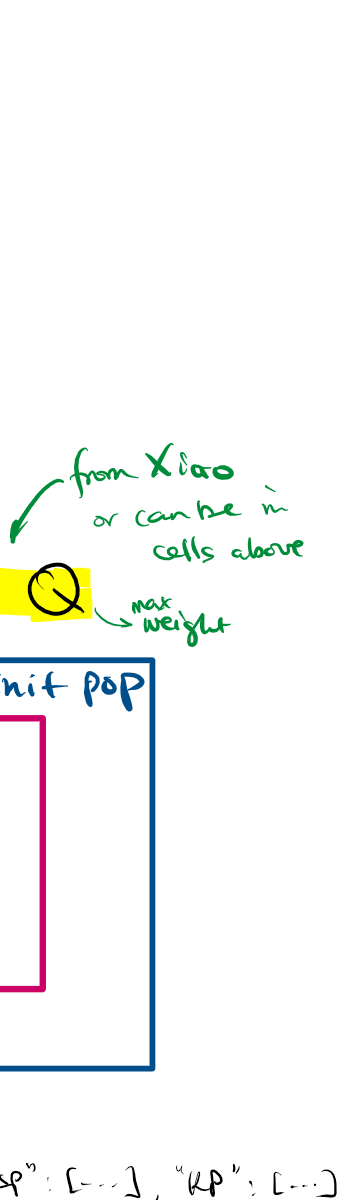 from Xiao
or can be in
cells above
Q
max
weight
init pop
SP": [---], "KP": [---]